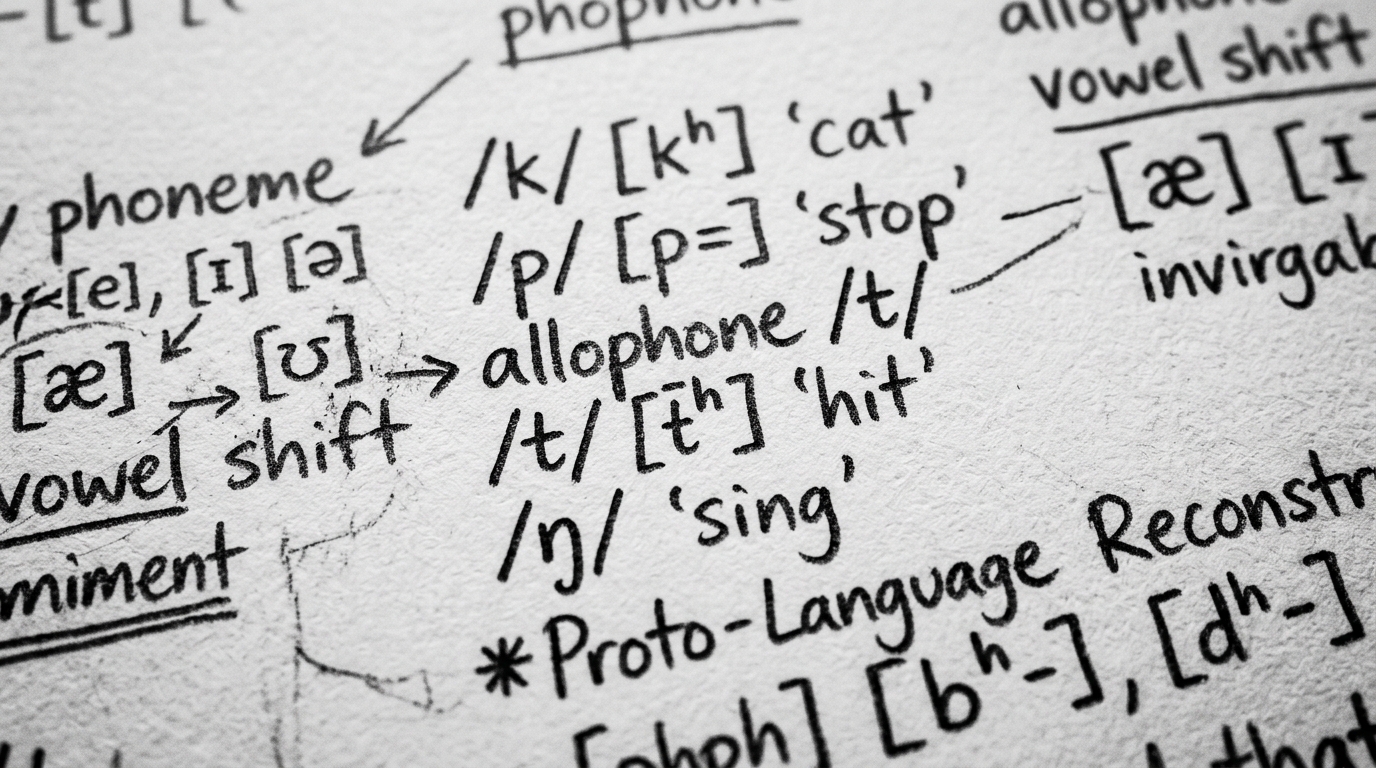 [t]
phophon
allophone
vowel shift
phoneme
/k/ [kʰ] ‘cat’
[æ] [ɪ
[e], [ɪ] [ə]
/p/ [p=] ‘stop’
[æ]
→ [ʊ] → allophone /t/
vowel shift
/t/ [t̄ʰ] ‘hit’
/ŋ/ ‘sing’
miment
*Proto-Language Reconstr
[bʰ-], [dʰ-]
that